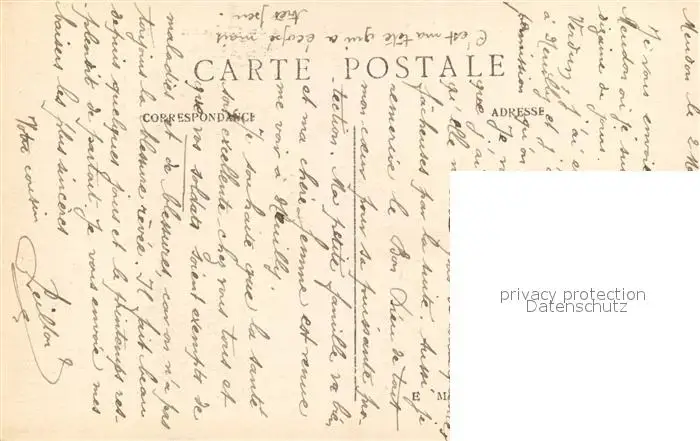 CARTE POSTALE
CORRESPONDANCE
ADRESSE
Meudon le 2 Ma
Je vous envoie
Meudon où je suis
dizaine de jours.
Verdun, j'ai é
à Neuilly et j'
permission
que j'ai
qu'elle n
fâcheuses par la suite. Aussi je
remercie le Bon Dieu de tout
mon cœur pour sa puissante pro-
tection. Ma petite famille va bien
et ma chère femme est venue
me voir à Neuilly.
Je souhaite que la santé
soit excellente chez vous tous et
que vos soldats soient exempts de
maladies et de blessures, car on n'a pas
toujours la blessure rêvée. Il fait beau
depuis quelques jours et le printemps res-
plendit de partout. Je vous envoie mes
baisers les plus sincères
Votre cousin
C'est ma tête qui a écopé mais
très peu.
E M
privacy protection
Datenschutz